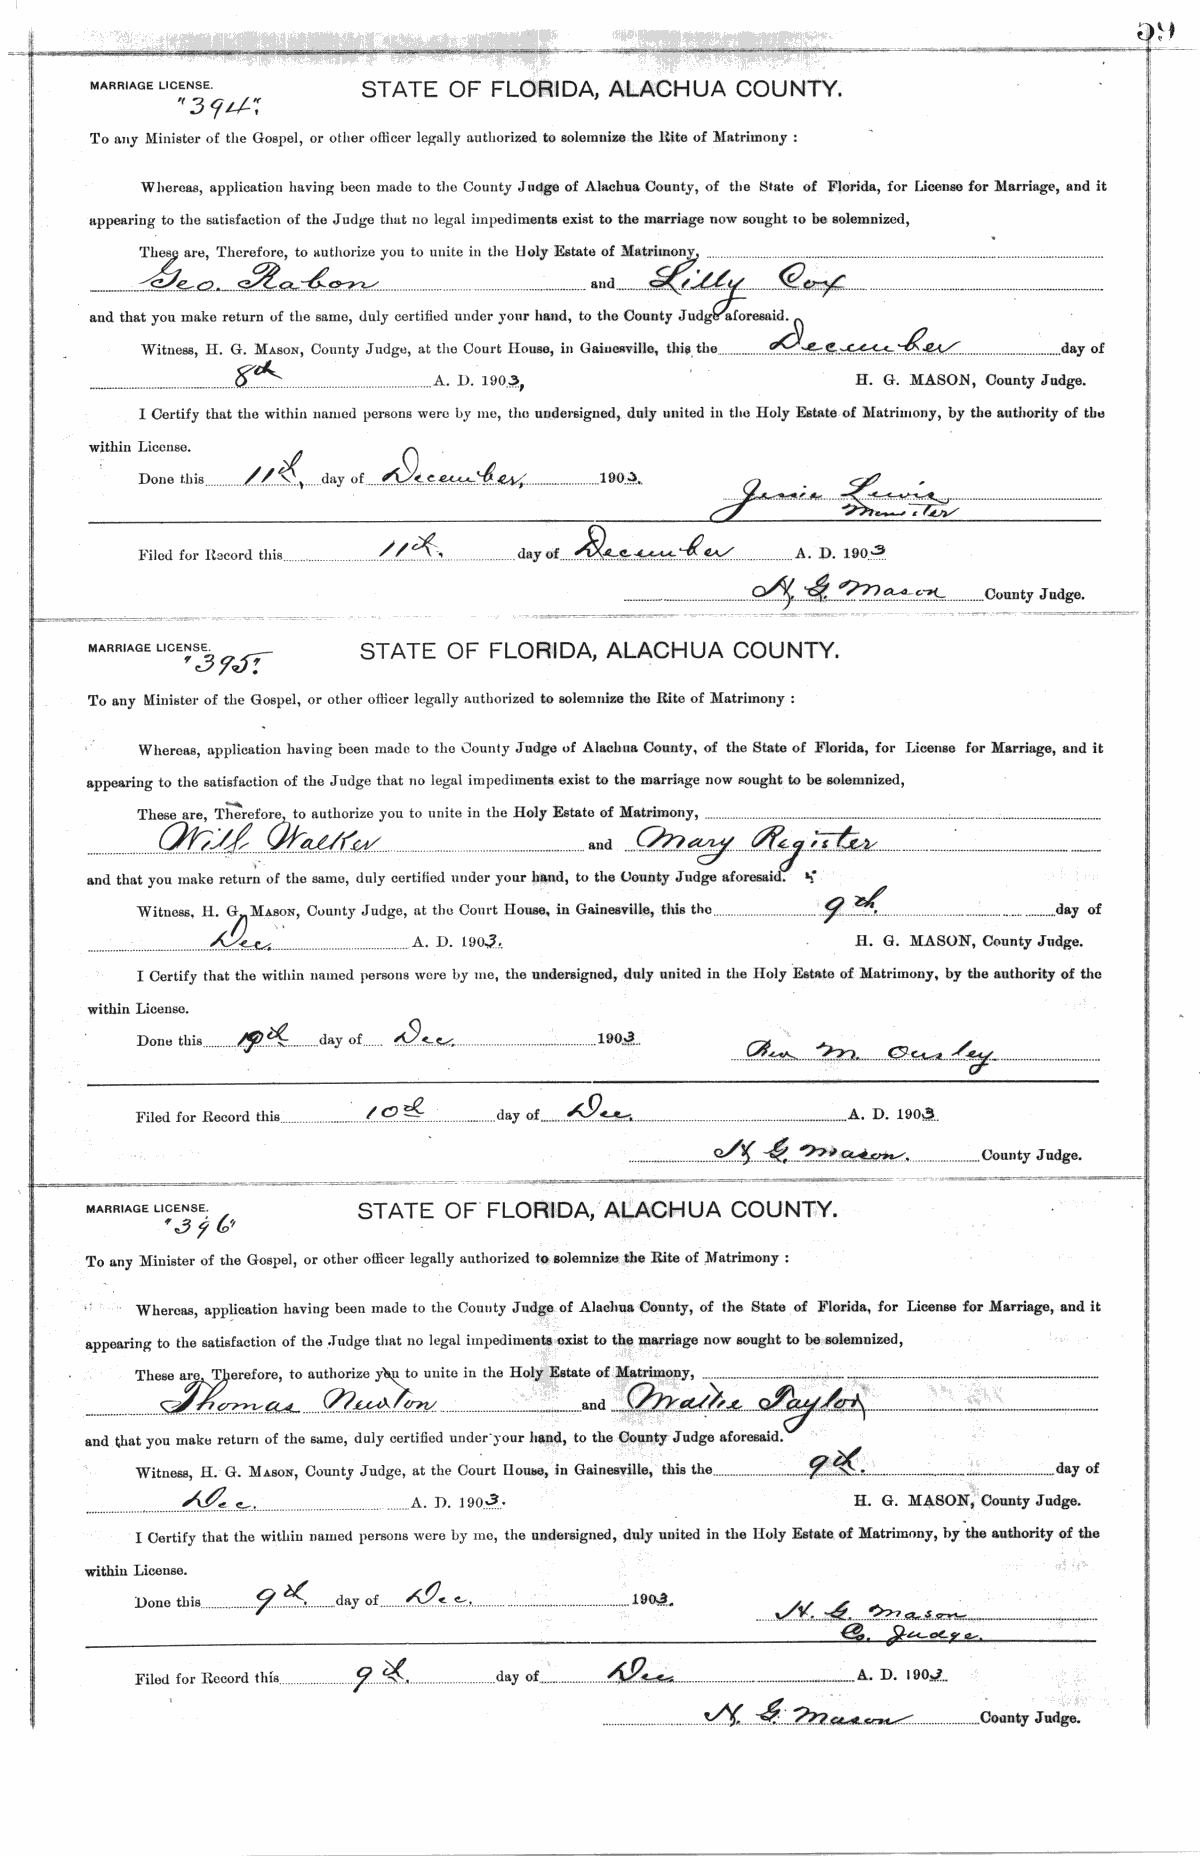 59
MARRIAGE LICENSE.
"394".
STATE OF FLORIDA, ALACHUA COUNTY.
To any Minister of the Gospel, or other officer legally authorized to solemnize the Rite of Matrimony :
Whereas, application having been made to the County Judge of Alachua County, of the State of Florida, for License for Marriage, and it
appearing to the satisfaction of the Judge that no legal impediments exist to the marriage now sought to be solemnized,
These are, Therefore, to authorize you to unite in the Holy Estate of Matrimony,
Geo. Rabon and Lilly Cox
and that you make return of the same, duly certified under your hand, to the County Judge aforesaid.
Witness, H. G. MASON, County Judge, at the Court House, in Gainesville, this the December day of
8th A. D. 1903, H. G. MASON, County Judge.
I Certify that the within named persons were by me, the undersigned, duly united in the Holy Estate of Matrimony, by the authority of the
within License.
Done this 11th, day of December, 1903.
Jessie Lewis,
Minister
Filed for Record this 11th. day of December A. D. 1903
H. G. Mason County Judge.
MARRIAGE LICENSE.
"395".
STATE OF FLORIDA, ALACHUA COUNTY.
To any Minister of the Gospel, or other officer legally authorized to solemnize the Rite of Matrimony :
Whereas, application having been made to the County Judge of Alachua County, of the State of Florida, for License for Marriage, and it
appearing to the satisfaction of the Judge that no legal impediments exist to the marriage now sought to be solemnized,
These are, Therefore, to authorize you to unite in the Holy Estate of Matrimony,
Will Walker and Mary Register
and that you make return of the same, duly certified under your hand, to the County Judge aforesaid.
Witness, H. G. MASON, County Judge, at the Court House, in Gainesville, this the 9th. day of
Dec. A. D. 1903. H. G. MASON, County Judge.
I Certify that the within named persons were by me, the undersigned, duly united in the Holy Estate of Matrimony, by the authority of the
within License.
Done this day of Dec. 1903.
Rev M. Ousley
Filed for Record this 10th day of Dec. A. D. 1903
H. G. Mason. County Judge.
MARRIAGE LICENSE.
"396"
STATE OF FLORIDA, ALACHUA COUNTY.
To any Minister of the Gospel, or other officer legally authorized to solemnize the Rite of Matrimony :
Whereas, application having been made to the County Judge of Alachua County, of the State of Florida, for License for Marriage, and it
appearing to the satisfaction of the Judge that no legal impediments exist to the marriage now sought to be solemnized,
These are, Therefore, to authorize you to unite in the Holy Estate of Matrimony,
Thomas Newton and Mattie Taylor
and that you make return of the same, duly certified under your hand, to the County Judge aforesaid.
Witness, H. G. MASON, County Judge, at the Court House, in Gainesville, this the 9th. day of
Dec. A. D. 1903. H. G. MASON, County Judge.
I Certify that the within named persons were by me, the undersigned, duly united in the Holy Estate of Matrimony, by the authority of the
within License.
Done this 9th. day of Dec. 1903.
H. G. Mason
Co. Judge.
Filed for Record this 9th. day of Dec. A. D. 1903.
H. G. Mason County Judge.